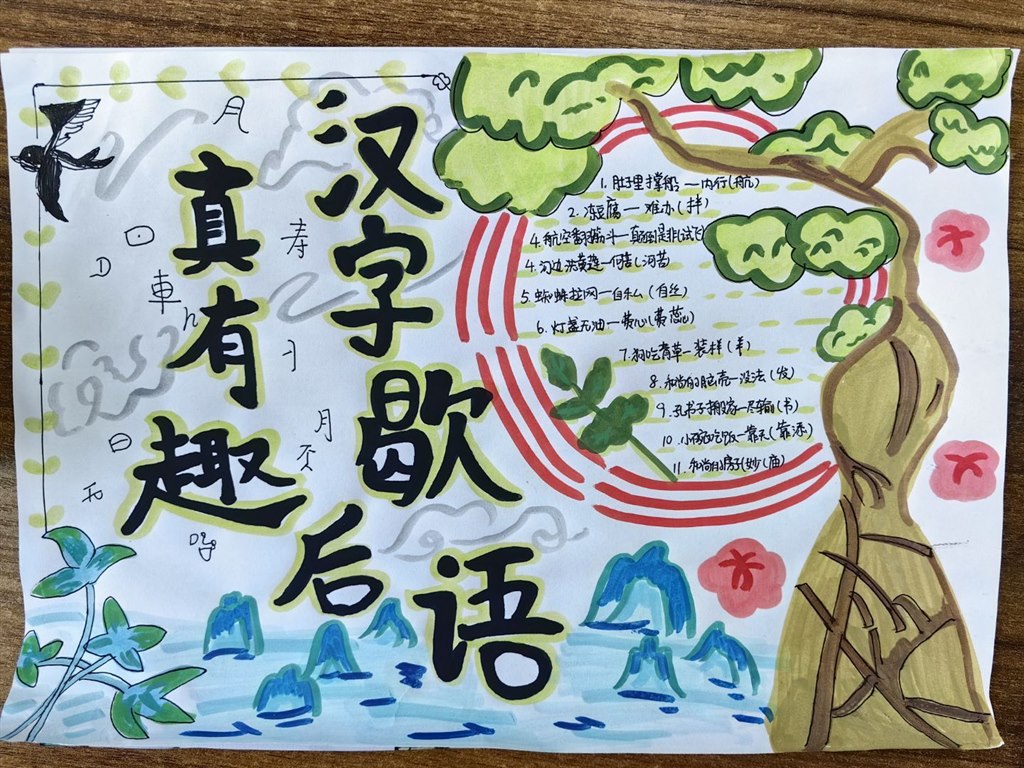 汉字歇后语
真有趣
1. 肚子里撑船——内行(航)
2. 冻豆腐—难办(拌)
4. 航空翻筋斗—
4. 河边洗黄莲—何苦(河苦)
5. 蜘蛛拉网—自私(自丝)
6. 灯盏无油—费心(费芯)
7. 狗吃青草—装样(羊)
8. 和尚的脑壳—没法(发)
9. 孔书子搬家—尽输(书)
10. 小碗吃饭—靠天(靠添)
11. 和尚的房子(妙(庙)
月
寿
車
D
日
月